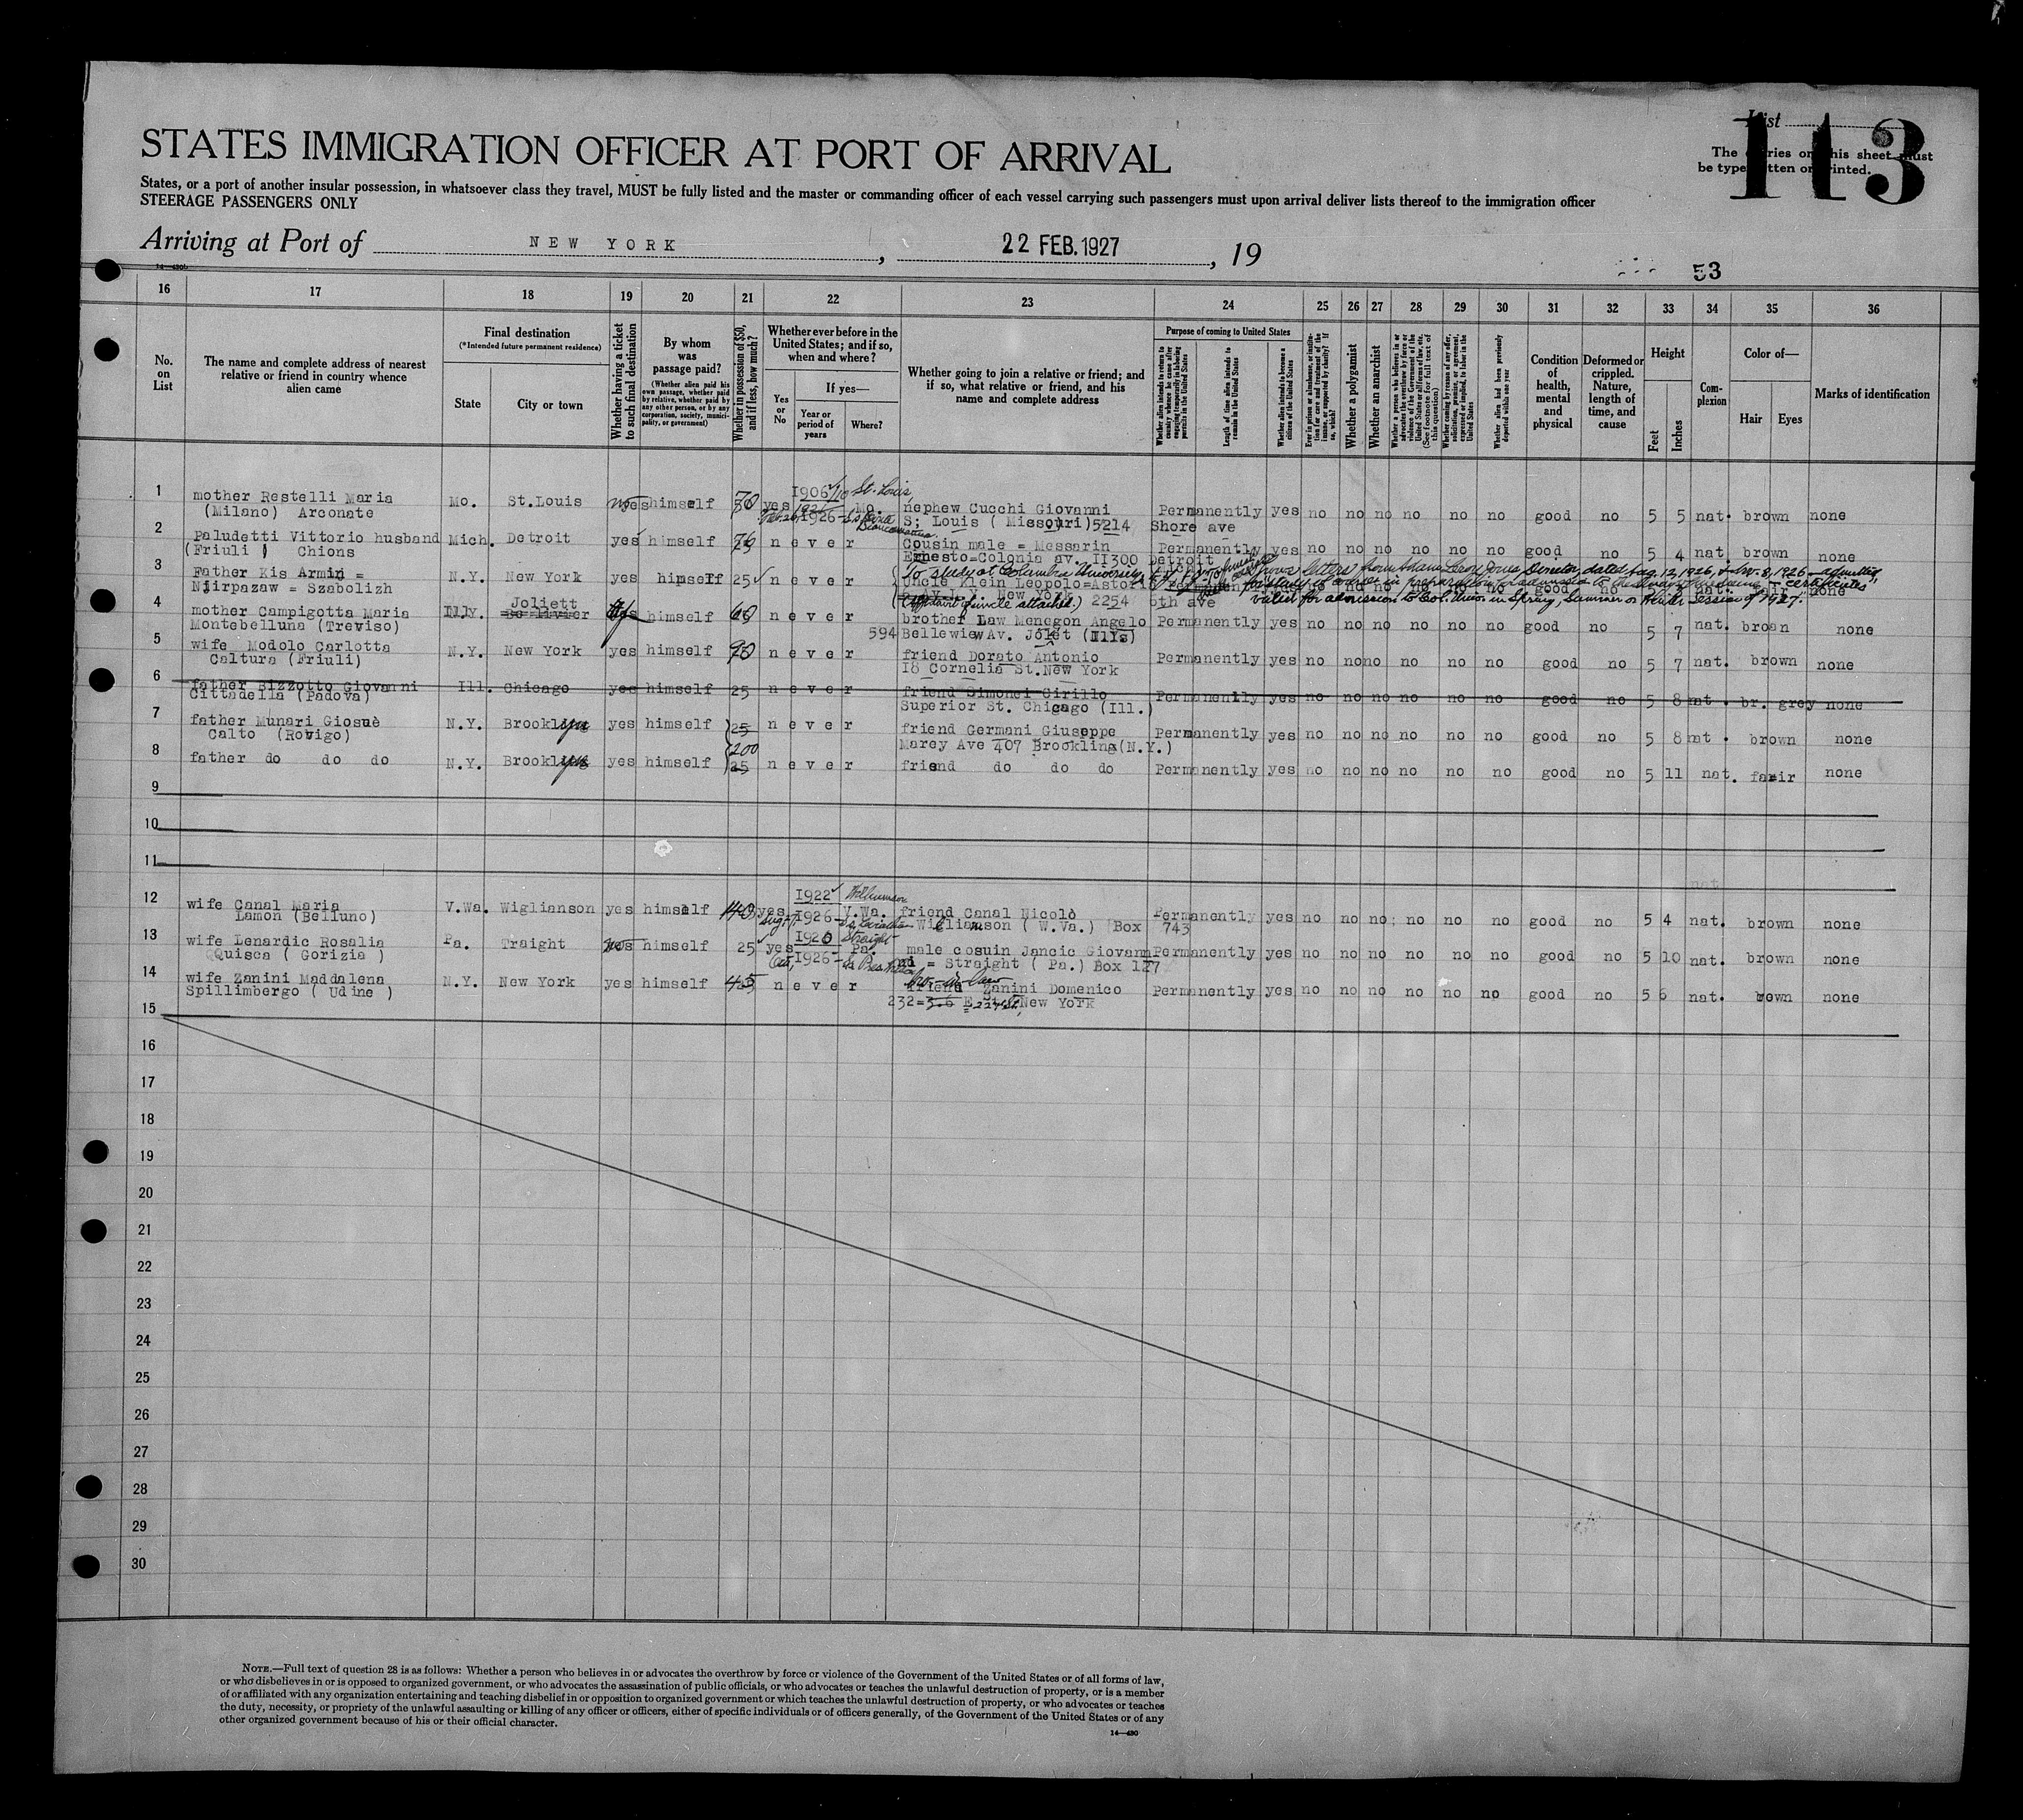 List
113
The entries on this sheet must
be typewritten or printed.
STATES IMMIGRATION OFFICER AT PORT OF ARRIVAL
States, or a port of another insular possession, in whatsoever class they travel, MUST be fully listed and the master or commanding officer of each vessel carrying such passengers must upon arrival deliver lists thereof to the immigration officer
STEERAGE PASSENGERS ONLY
Arriving at Port of NEW YORK, 22 FEB. 1927, 19
53
16 17 18 19 20 21 22 23 24 25 26 27 28 29 30 31 32 33 34 35 36
No. on List
The name and complete address of nearest relative or friend in country whence alien came
Final destination
(*Intended future permanent residence)
State
City or town
Whether having a ticket to such final destination
By whom was passage paid?
(Whether alien paid his own passage, whether paid by relative, whether paid by any other person, or by any corporation, society, municipality, or government)
Whether in possession of $50, and if less, how much?
Whether ever before in the United States; and if so, when and where?
Yes or No
If yes—
Year or period of years
Where?
Whether going to join a relative or friend; and if so, what relative or friend, and his name and complete address
Purpose of coming to United States
Whether alien intends to return to country whence he came after engaging temporarily in laboring pursuits in the United States
Length of time alien intends to remain in the United States
Whether alien intends to become a citizen of the United States
Ever in prison or almshouse, or institution for care and treatment of the insane, or supported by charity? If so, which?
Whether a polygamist
Whether an anarchist
Whether a person who believes in or advocates the overthrow by force or violence of the Government of the United States or all forms of law, etc. (See footnote for full text of this question)
Whether coming by reason of any offer, solicitation, promise, or agreement, expressed or implied, to labor in the United States
Whether alien had been previously deported within one year
Condition of health, mental and physical
Deformed or crippled. Nature, length of time, and cause
Height
Feet
Inches
Complexion
Color of—
Hair
Eyes
Marks of identification
1906/10 St. Louis,
1 mother Restelli Maria Mo. St.Louis himself 70 yes Mo. nephew Cucchi Giovanni Permanently yes no no no no no no good no 5 5 nat. brown none
(Milano) Arconate 1926 S; Louis ( Missouri) 5214 Shore ave
2 Paludetti Vittorio husband Mich. Detroit yes himself 76 never Cousin male = Messarin Permanently yes no no no no no no good no 5 4 nat. brown none
(Friuli ) Chions Ernesto=Colonia av. II300 Detroit
To study at Columbia University
3 Father Kis Armin = N.Y. New York yes himself 25 never Uncle Klein Leopolo=Astor
Njirpazaw = Szabolizh N.Y. New York
(Affidavit of uncle attached.) 2254 5th ave
letters from Adam Leroy Jones Director, dated Aug. 12, 1926 & Nov. 8, 1926
valid for admission to Col. Univ. in Spring, Summer or Winter Session of 1927.
4 mother Campigotta Maria Ill. Joliett himself 60 never brother Law Menegon Angelo Permanently yes no no no no no no good no 5 7 nat. broan none
Montebelluna (Treviso) 594 Bellewiew Av. Jolet (Ills)
5 wife Modolo Carlotta N.Y. New York yes himself 90 never friend Dorato Antonio Permanently yes no no no no no no good no 5 7 nat. brown none
Caltura (Friuli) I8 Cornelia St.New York
6 father Bizzotto Giovanni Ill. Chicago yes himself 25 never friend Simonei Cirillo Permanently yes no no no no no no good no 5 8 nat. br. grey none
Cittadella (Padova) Superior St. Chicago (Ill.)
7 father Munari Giosuè N.Y. Brooklyn yes himself 25 never friend Germani Giuseppe Permanently yes no no no no no no good no 5 8 nat. brown none
Calto (Rovigo) 200 Marcy Ave 407 Brookling(N.Y.)
8 father do do do N.Y. Brooklyn yes himself 25 never friend do do do Permanently yes no no no no no no good no 5 11 nat. fair none
9
10
11
1922
12 wife Canal Maria V.Wa. Wiglianson yes himself 140 yes V.Wa. friend Canal Nicolò Permanently yes no no no no no no good no 5 4 nat. brown none
Lamon (Belluno) 1926 Williamson ( W.Va.) Box 743
1920 Straight
13 wife Lenardic Rosalia Pa. Traight himself 25 yes Pa. male cosuin Jancic Giovanni Permanently yes no no no no no no good no 5 10 nat. brown none
Quisca ( Gorizia ) Oct, 1926 = Straight ( Pa.) Box 127
14 wife Zanini Maddalena N.Y. New York yes himself 45 never friend Zanini Domenico Permanently yes no no no no no no good no 5 6 nat. brown none
Spillimbergo ( Udine ) 232= E 227 St, New York
15
16
17
18
19
20
21
22
23
24
25
26
27
28
29
30
NOTE.—Full text of question 28 is as follows: Whether a person who believes in or advocates the overthrow by force or violence of the Government of the United States or of all forms of law,
or who disbelieves in or is opposed to organized government, or who advocates the assassination of public officials, or who advocates or teaches the unlawful destruction of property, or is a member
of or affiliated with any organization entertaining and teaching disbelief in or opposition to organized government or which teaches the unlawful destruction of property, or who advocates or teaches
the duty, necessity, or propriety of the unlawful assaulting or killing of any officer or officers, either of specific individuals or of officers generally, of the Government of the United States or of any
other organized government because of his or their official character.
14—430